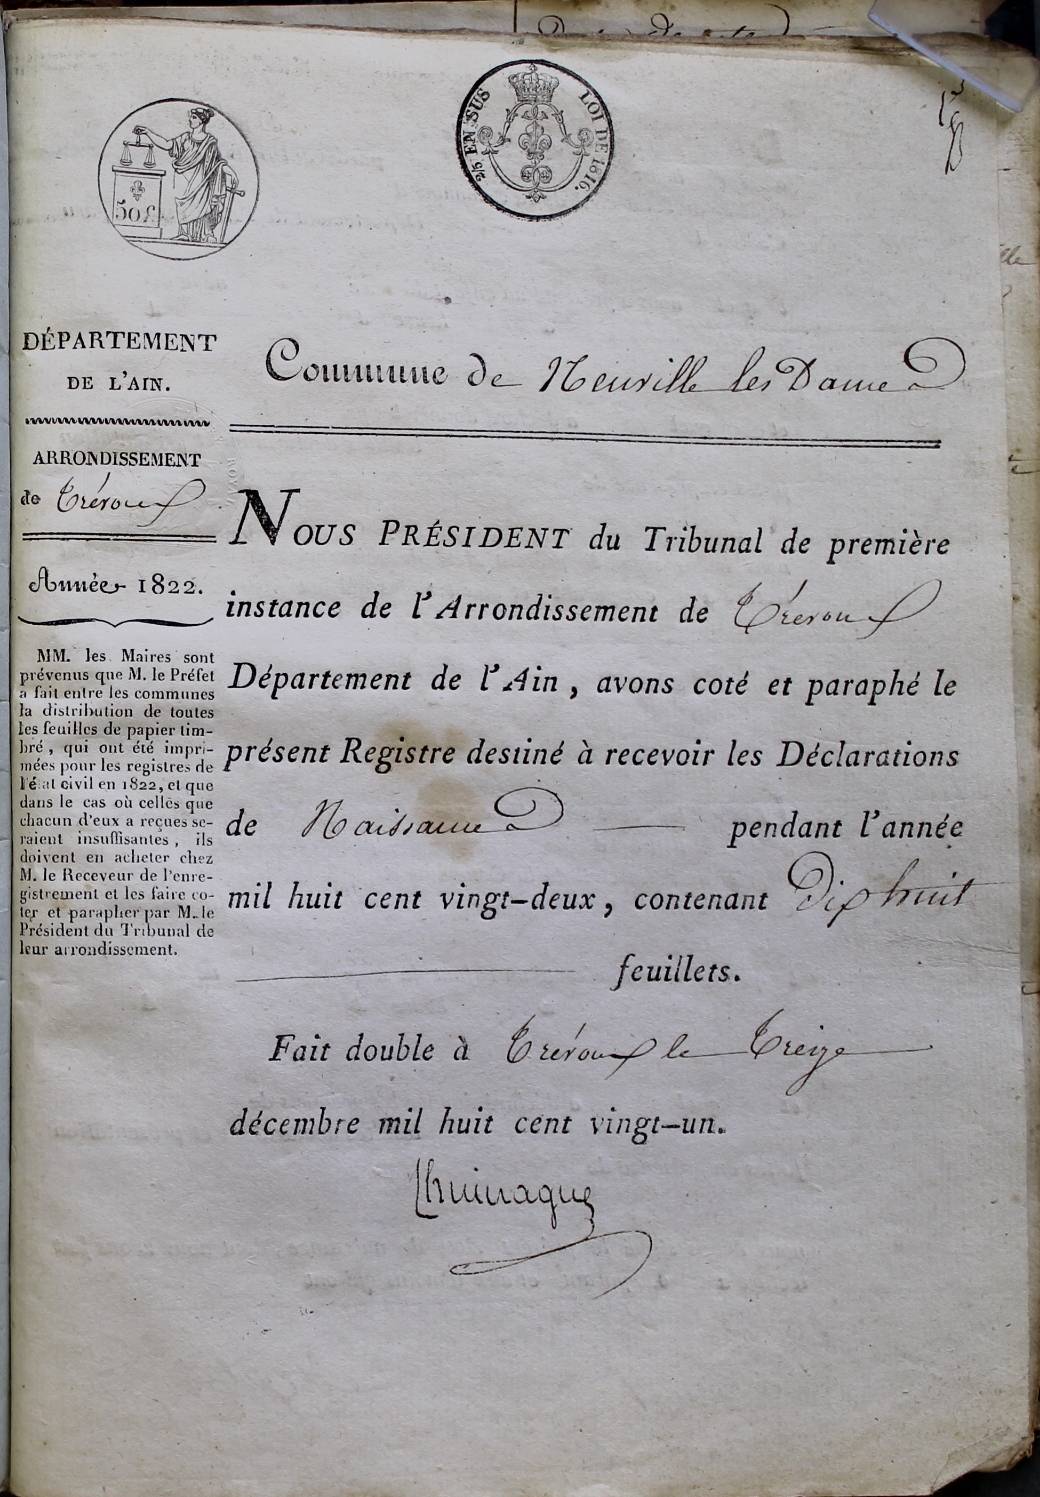 50 c.
2/5 EN SUS
LOI DE 1816.
DÉPARTEMENT
DE L'AIN.
ARRONDISSEMENT
de Trévoux
Année 1822.
MM. les Maires sont
prévenus que M. le Préfet
a fait entre les communes
la distribution de toutes
les feuilles de papier tim-
bré, qui ont été impri-
mées pour les registres de
l'état civil en 1822, et que
dans le cas où celles que
chacun d'eux a reçues se-
raient insuffisantes, ils
doivent en acheter chez
M. le Receveur de l'enre-
gistrement et les faire co-
ter et parapher par M. le
Président du Tribunal de
leur arrondissement.
Commune de Neuville les Dames
NOUS PRÉSIDENT du Tribunal de première
instance de l'Arrondissement de Trévoux
Département de l'Ain, avons coté et paraphé le
présent Registre destiné à recevoir les Déclarations
de Naissances pendant l'année
mil huit cent vingt-deux, contenant Dix huit
feuillets.
Fait double à Trévoux le Treize
décembre mil huit cent vingt-un.